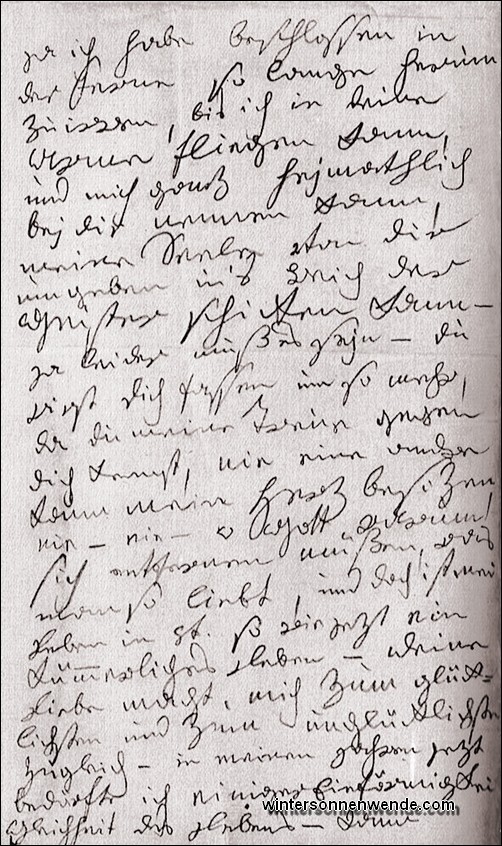 ja ich habe beschlossen in
der Ferne so lange herum
zu irren, bis ich in deine
Arme fliegen kann,
und mich ganz heimathlich
bej dir nennen kann,
meine Seele von dir
umgeben in's Reich der
Geister schicken kann –
ja leider muß es sejn – du
wirst dich fassen um so mehr,
da du meine Treue gegen
dich kennst, nie eine andre
kann mein Herz besizen,
nie – nie – o Gott warum
sich entfernen müßen, was
man so liebt, und doch ist mein
Leben in V. so wie jezt ein
kümmerliches Leben – deine
Liebe macht mich zum glück-
lichsten und zum unglücklichsten
zugleich – in meinen Jahren jezt
bedürfte ich einiger Einförmigkei
Gleichheit des Lebens – kann
wintersonnenwende.com